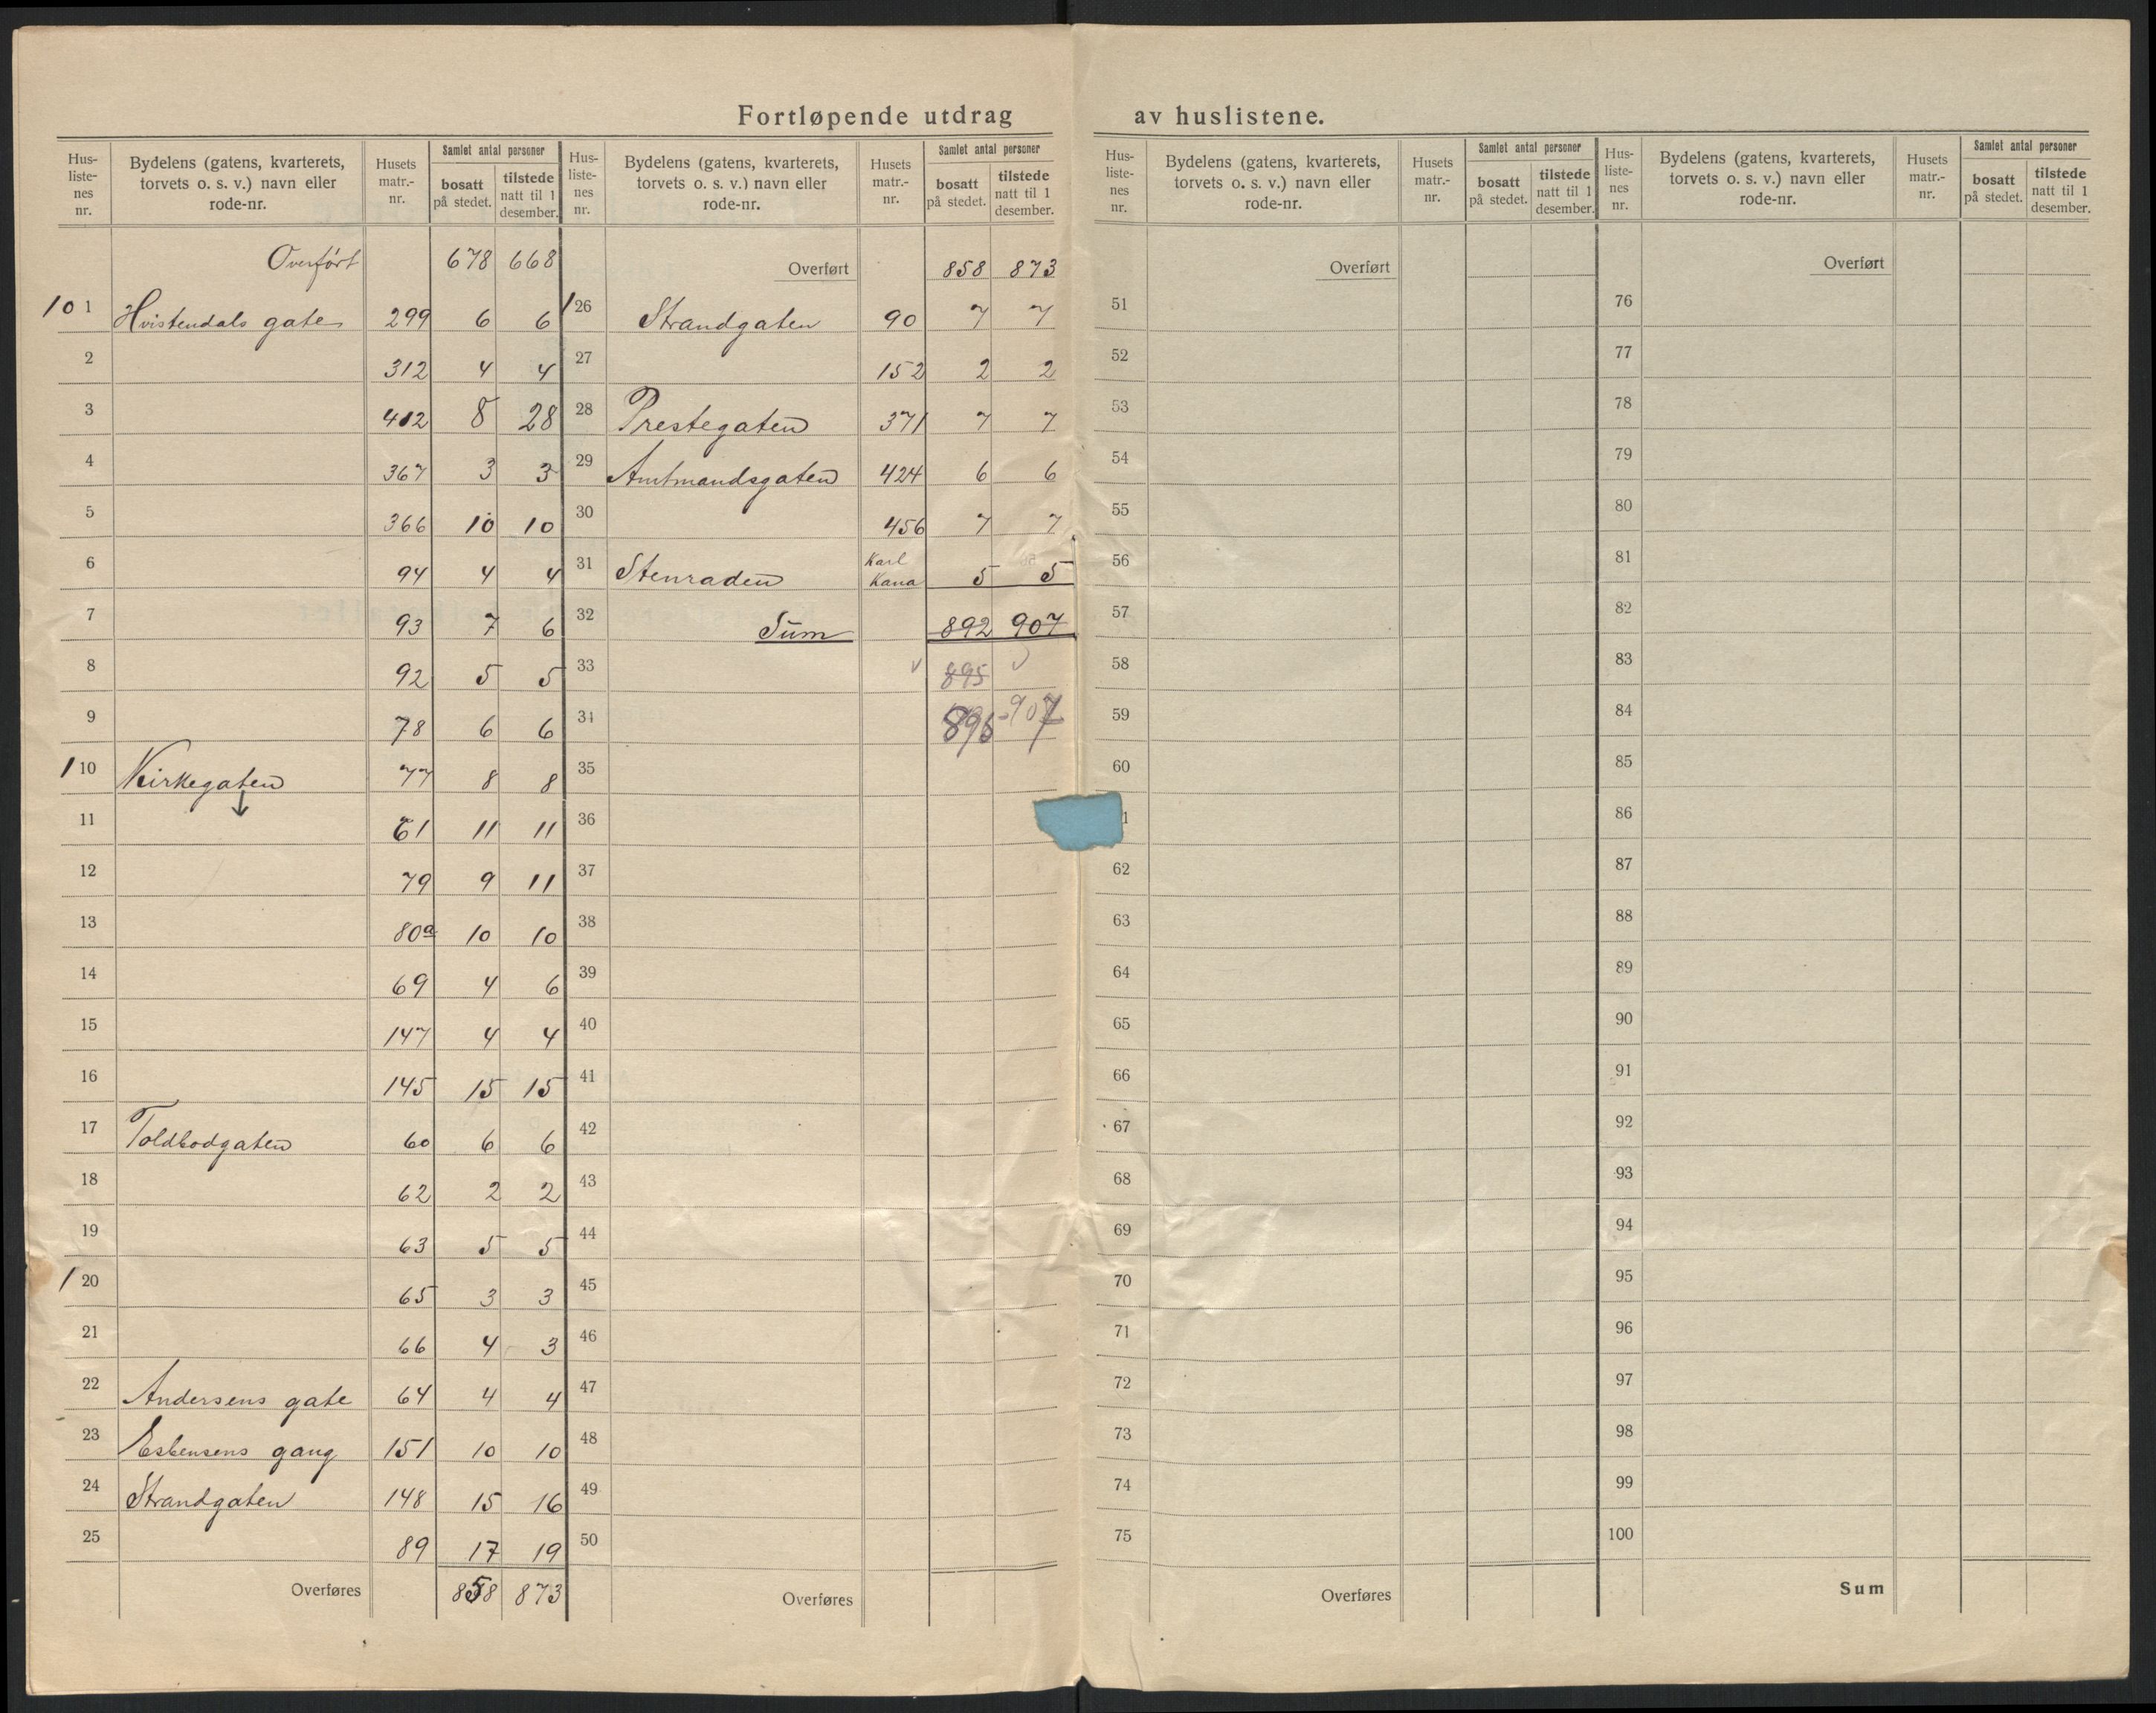 Fortløpende utdrag av huslistene.
Hus-listenes nr. | Bydelens (gatens, kvarterets, torvets o. s. v.) navn eller rode-nr. | Husets matr.-nr. | Samlet antal personer bosatt på stedet. | tilstede natt til 1 desember.
Overført 678 668
101 Hvistendals gate 299 6 6
2 312 4 4
3 402 8 28
4 367 3 3
5 366 10 10
6 94 4 4
7 93 7 6
8 92 5 5
9 78 6 6
110 Kirkegaten 77 8 8
11 ↓ 61 11 11
12 79 9 11
13 80a 10 10
14 69 4 6
15 147 4 4
16 145 15 15
17 Toldbodgaten 60 6 6
18 62 2 2
19 63 5 5
120 65 3 3
21 66 4 3
22 Andersens gate 64 4 4
23 Esbensens gang 151 10 10
24 Strandgaten 148 15 16
25 89 17 19
Overføres 858 873
Hus-listenes nr. | Bydelens (gatens, kvarterets, torvets o. s. v.) navn eller rode-nr. | Husets matr.-nr. | Samlet antal personer bosatt på stedet. | tilstede natt til 1 desember.
Overført 858 873
126 Strandgaten 90 7 7
27 152 2 2
28 Prestegaten 371 7 7
29 Amtmandsgaten 424 6 6
30 456 7 7
31 Stenraden Karl Kana 5 5
32 Sum 892 907
33 895
34 895 907
35
36
37
38
39
40
41
42
43
44
45
46
47
48
49
50
Overføres
Hus-listenes nr. | Bydelens (gatens, kvarterets, torvets o. s. v.) navn eller rode-nr. | Husets matr.-nr. | Samlet antal personer bosatt på stedet. | tilstede natt til 1 desember.
Overført
51
52
53
54
55
56
57
58
59
60
1
62
63
64
65
66
67
68
69
70
71
72
73
74
75
Overføres
Hus-listenes nr. | Bydelens (gatens, kvarterets, torvets o. s. v.) navn eller rode-nr. | Husets matr.-nr. | Samlet antal personer bosatt på stedet. | tilstede natt til 1 desember.
Overført
76
77
78
79
80
81
82
83
84
85
86
87
88
89
90
91
92
93
94
95
96
97
98
99
100
Sum